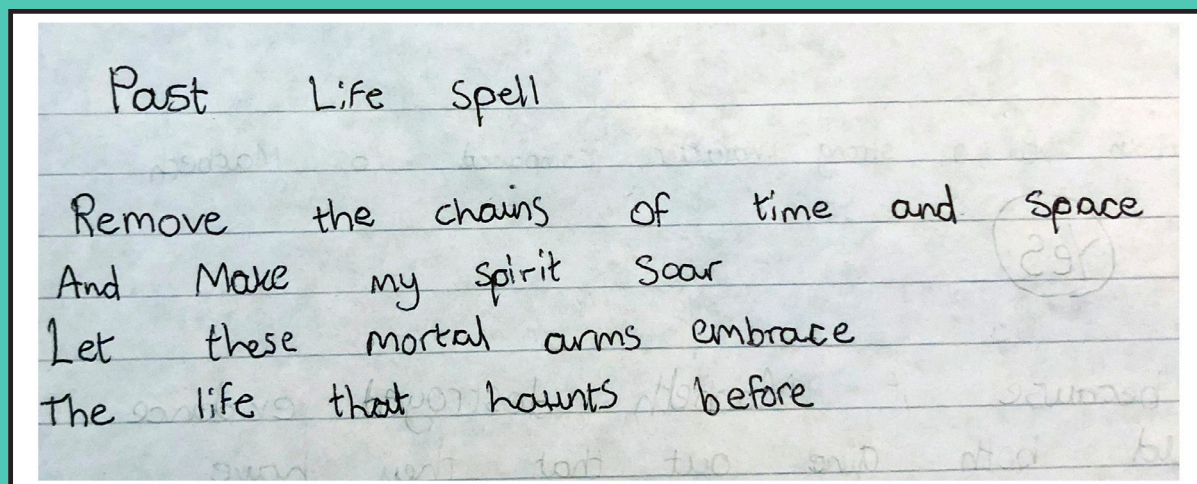 Past Life Spell
Remove the chains of time and space
And Make my spirit Soar
Let these mortal arms embrace
The life that haunts before